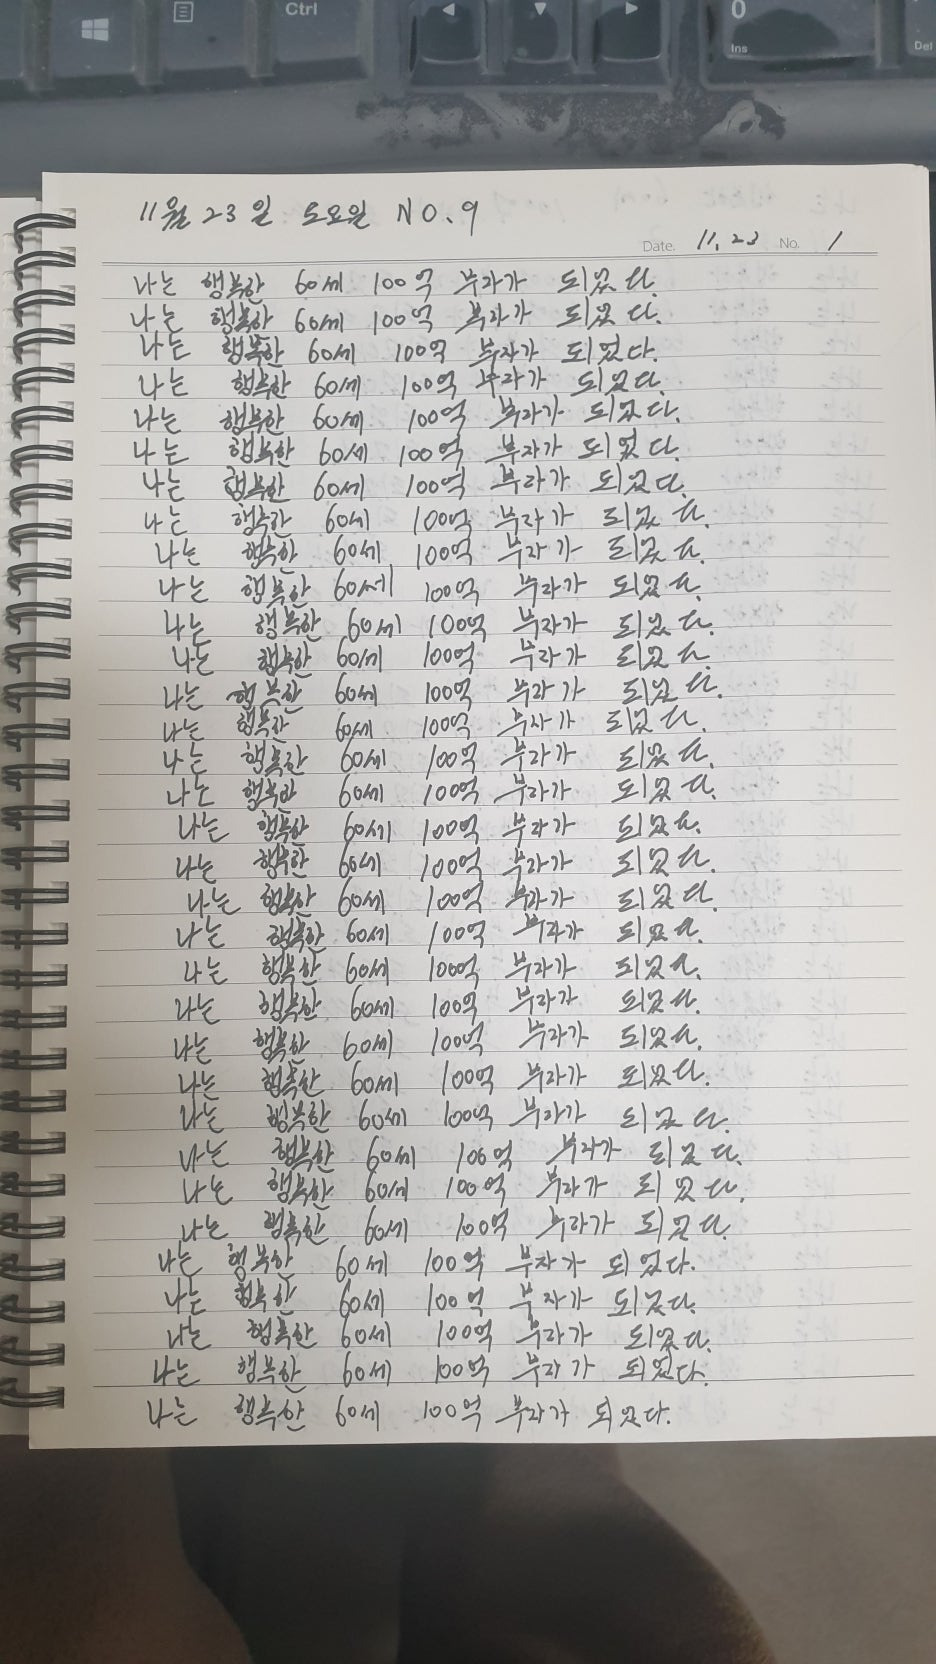 Ctrl
0
Ins
Del
11월 23일 토요일 NO.9
Date. 11.23 No. 1
나는 행복한 60세 100억 부자가 되었다.
나는 행복한 60세 100억 부자가 되었다.
나는 행복한 60세 100억 부자가 되었다.
나는 행복한 60세 100억 부자가 되었다.
나는 행복한 60세 100억 부자가 되었다.
나는 행복한 60세 100억 부자가 되었다.
나는 행복한 60세 100억 부자가 되었다.
나는 행복한 60세 100억 부자가 되었다.
나는 행복한 60세 100억 부자가 되었다.
나는 행복한 60세 100억 부자가 되었다.
나는 행복한 60세 100억 부자가 되었다.
나는 행복한 60세 100억 부자가 되었다.
나는 행복한 60세 100억 부자가 되었다.
나는 행복한 60세 100억 부자가 되었다.
나는 행복한 60세 100억 부자가 되었다.
나는 행복한 60세 100억 부자가 되었다.
나는 행복한 60세 100억 부자가 되었다.
나는 행복한 60세 100억 부자가 되었다.
나는 행복한 60세 100억 부자가 되었다.
나는 행복한 60세 100억 부자가 되었다.
나는 행복한 60세 100억 부자가 되었다.
나는 행복한 60세 100억 부자가 되었다.
나는 행복한 60세 100억 부자가 되었다.
나는 행복한 60세 100억 부자가 되었다.
나는 행복한 60세 100억 부자가 되었다.
나는 행복한 60세 100억 부자가 되었다.
나는 행복한 60세 100억 부자가 되었다.
나는 행복한 60세 100억 부자가 되었다.
나는 행복한 60세 100억 부자가 되었다.
나는 행복한 60세 100억 부자가 되었다.
나는 행복한 60세 100억 부자가 되었다.
나는 행복한 60세 100억 부자가 되었다.
나는 행복한 60세 100억 부자가 되었다.